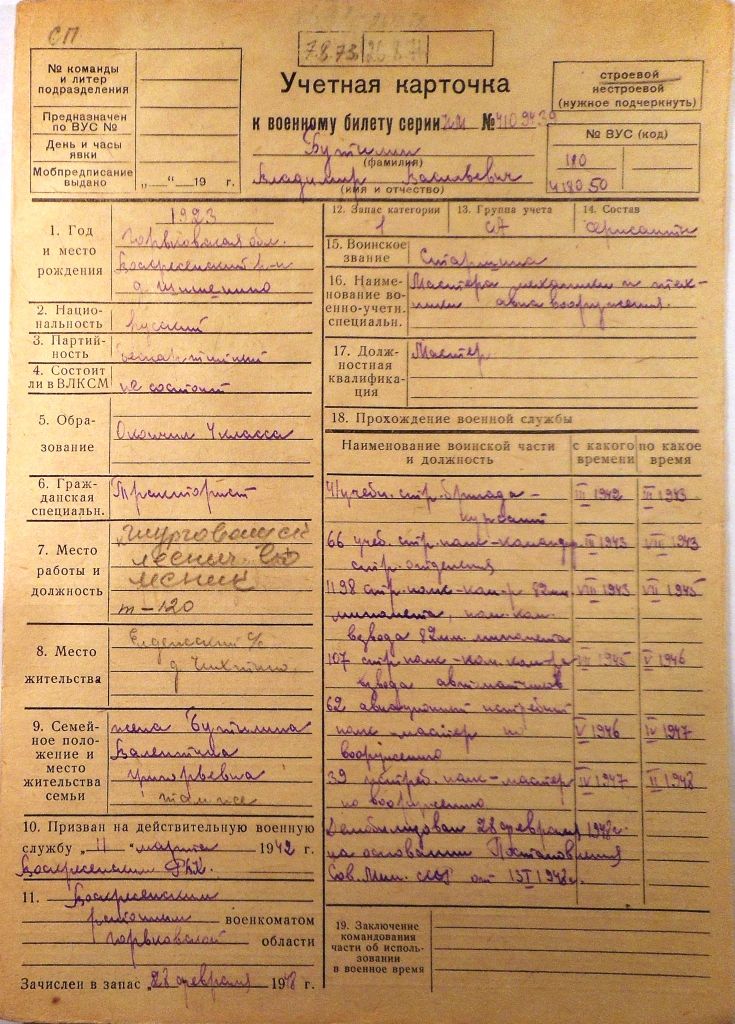 СП
7.8.73
Учетная карточка
к военному билету серии НИ №
Бутилин
(фамилия)
Владимир Васильевич
(имя и отчество)
№ команды
и литер
подразделения
Предназначен
по ВУС №
День и часы
явки
Мобпредписание
выдано „ “ 19 г.
строевой
нестроевой
(нужное подчеркнуть)
№ ВУС (код)
180
1. Год
и место
рождения
1923
Горьковская обл.
Воскресенский р-н
д.
2. Нацио-
нальность
русский
3. Партий-
ность
беспартийный
4. Состоит
ли в ВЛКСМ
не состоит
5. Обра-
зование
Окончил 4 класса
6. Граж-
данская
специальн.
Тракторист
7. Место
работы и
должность
леснич-во
лесник
т-120
8. Место
жительства
с/с
д.
9. Семей-
ное поло-
жение и
место
жительства
семьи
жена Бутилина
Валентина
Григорьевна
там же
10. Призван на действительную военную
службу „11“ марта 1942 г.
Воскресенским РВК.
11. Воскресенским
районным военкоматом
Горьковской области
Зачислен в запас „28 февраля 1948 г.
12. Запас категории
1
13. Группа учета
СА
14. Состав
сержантск
15. Воинское
звание
Старшина
16. Наиме-
нование во-
енно-учетн.
специальн.
Мастера механики и тех-
ники авиавооружения.
17. Долж-
ностная
квалифика-
ция
Мастер
18. Прохождение военной службы
Наименование воинской части
и должность
с какого
времени
по какое
время
41 учебн. стр. бригада - III 1942 III 1943
курсант
66 учеб. стр. полк - командир III 1943 VIII 1943
стр. отделения
1198 стр. полк - ком-р 82мм. VIII 1943 VII 1945
миномета, пом. ком.
взвода 82мм. миномета
107 стр. полк - пом. ком-ра VII 1945 V 1946
взвода автоматчиков
62 авиационный истребит.
полк - мастер по V 1946 IV 1947
вооружению
39 истреб. полк - мастер IV 1947 II 1948
по вооружению
Демобилизован 28 февраля 1948г.
на основании Постановления
Сов. Мин. СССР от 1948г.
19. Заключение
командования
части об исполь-
зовании
в военное время